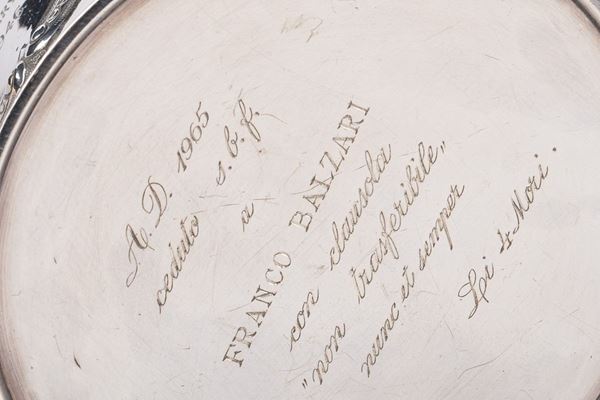 A.D. 1965
ceduto s.b.f.
a
FRANCO BALZARI
con clausola
"non trasferibile„
nunc et semper
Li 4 Mori.